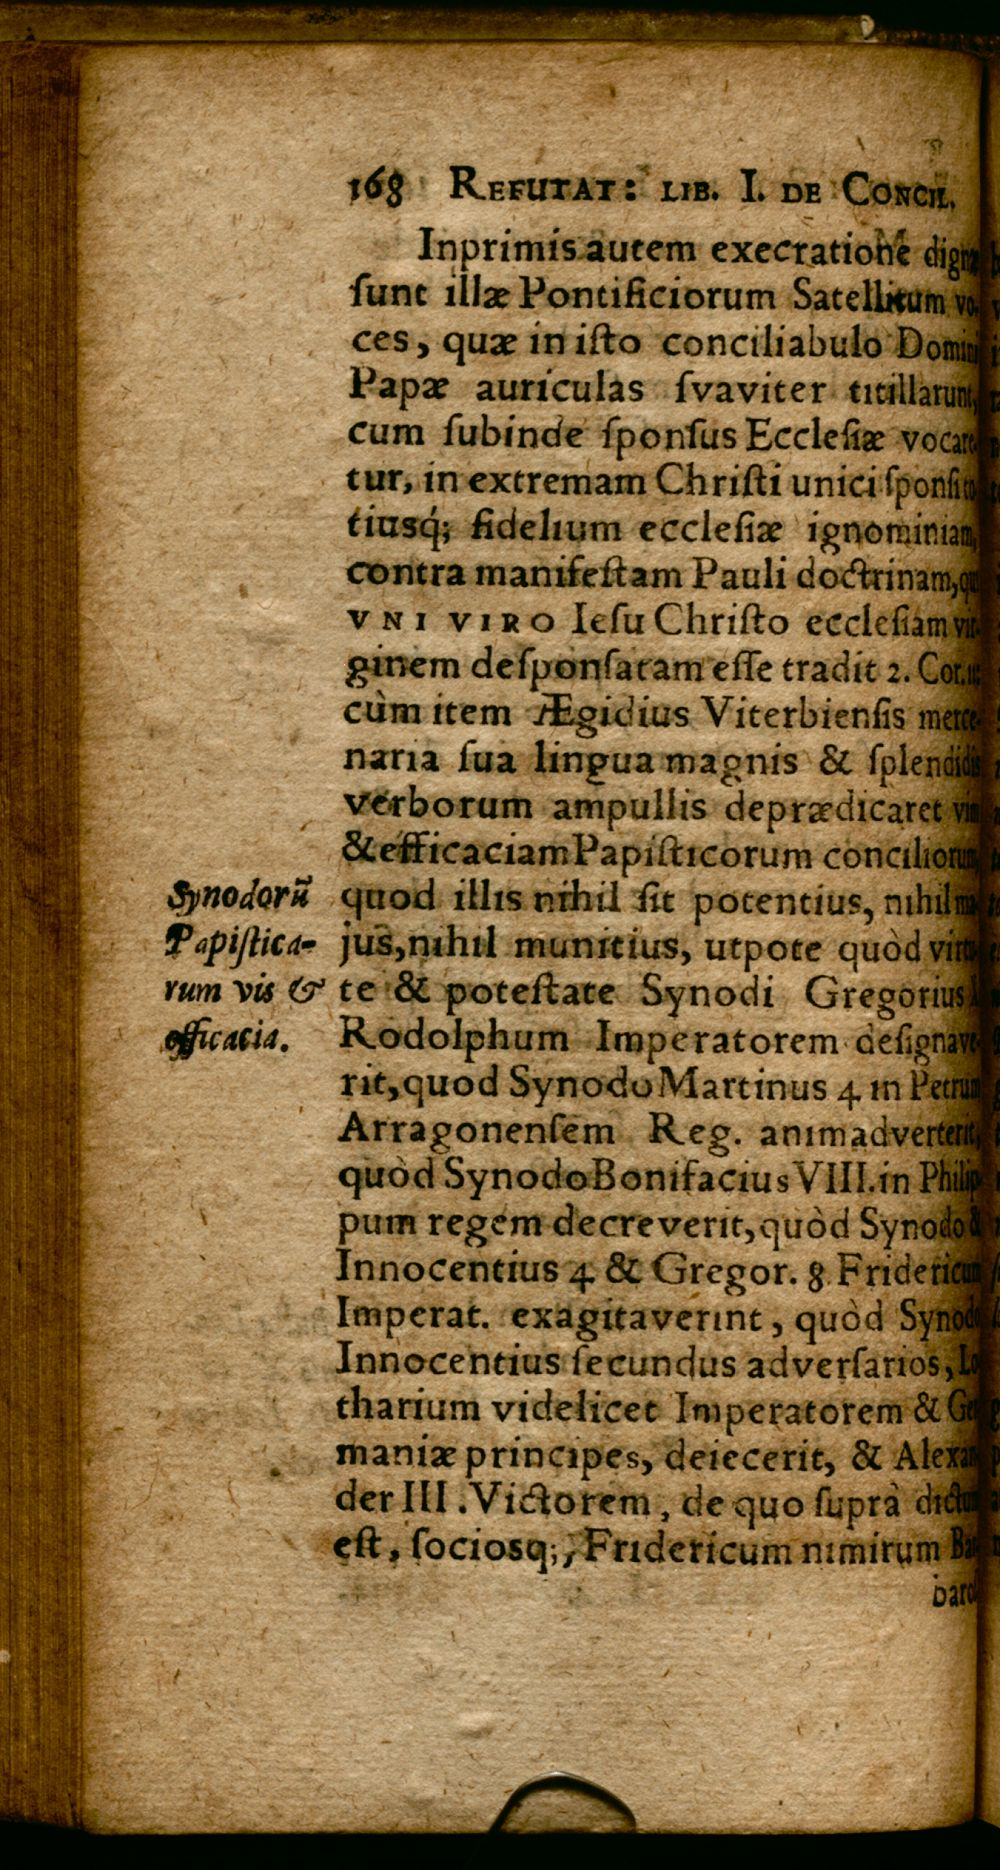 168 REFUTAT: LIB. I. DE CONCIL.
Inprimis autem execratione dignæ
ſunt illæ Pontificiorum Satellitum vo-
ces, quæ in iſto conciliabulo Domini
Papæ auriculas ſvaviter titillarunt,
cum ſubinde ſponſus Eccleſiæ vocare-
tur, in extremam Chriſti unici ſponſi to-
tiusq́; fidelium eccleſiæ ignominiam,
contra manifeſtam Pauli doctrinam, qui
VNI VIRO Ieſu Chriſto eccleſiam vir-
ginem deſponſatam eſſe tradit 2. Cor. 11:
cùm item Ægidius Viterbienſis merce-
naria ſua lingua magnis & ſplendidis
verborum ampullis deprædicaret vim
& efficaciam Papiſticorum conciliorum,
Synodorũ
Papiſtica-
rum vis &
efficacia.
quod illis nihil ſit potentius, nihil ma-
jus, nihil munitius, utpote quòd virtu-
te & poteſtate Synodi Gregorius
Rodolphum Imperatorem deſignave-
rit, quod Synodo Martinus 4 in Petrum
Arragonenſem Reg. animadverterit,
quòd Synodo Bonifacius VIII. in Philip-
pum regem decreverit, quòd Synodo &
Innocentius 4 & Gregor. 8 Fridericum
Imperat. exagitaverint, quòd Synodo
Innocentius ſecundus adverſarios, Lo-
tharium videlicet Imperatorem & Ger-
maniæ principes, deiecerit, & Alexan-
der III. Victorem, de quo ſuprà dictum
eſt, ſociosq;, Fridericum nimirum Bar-